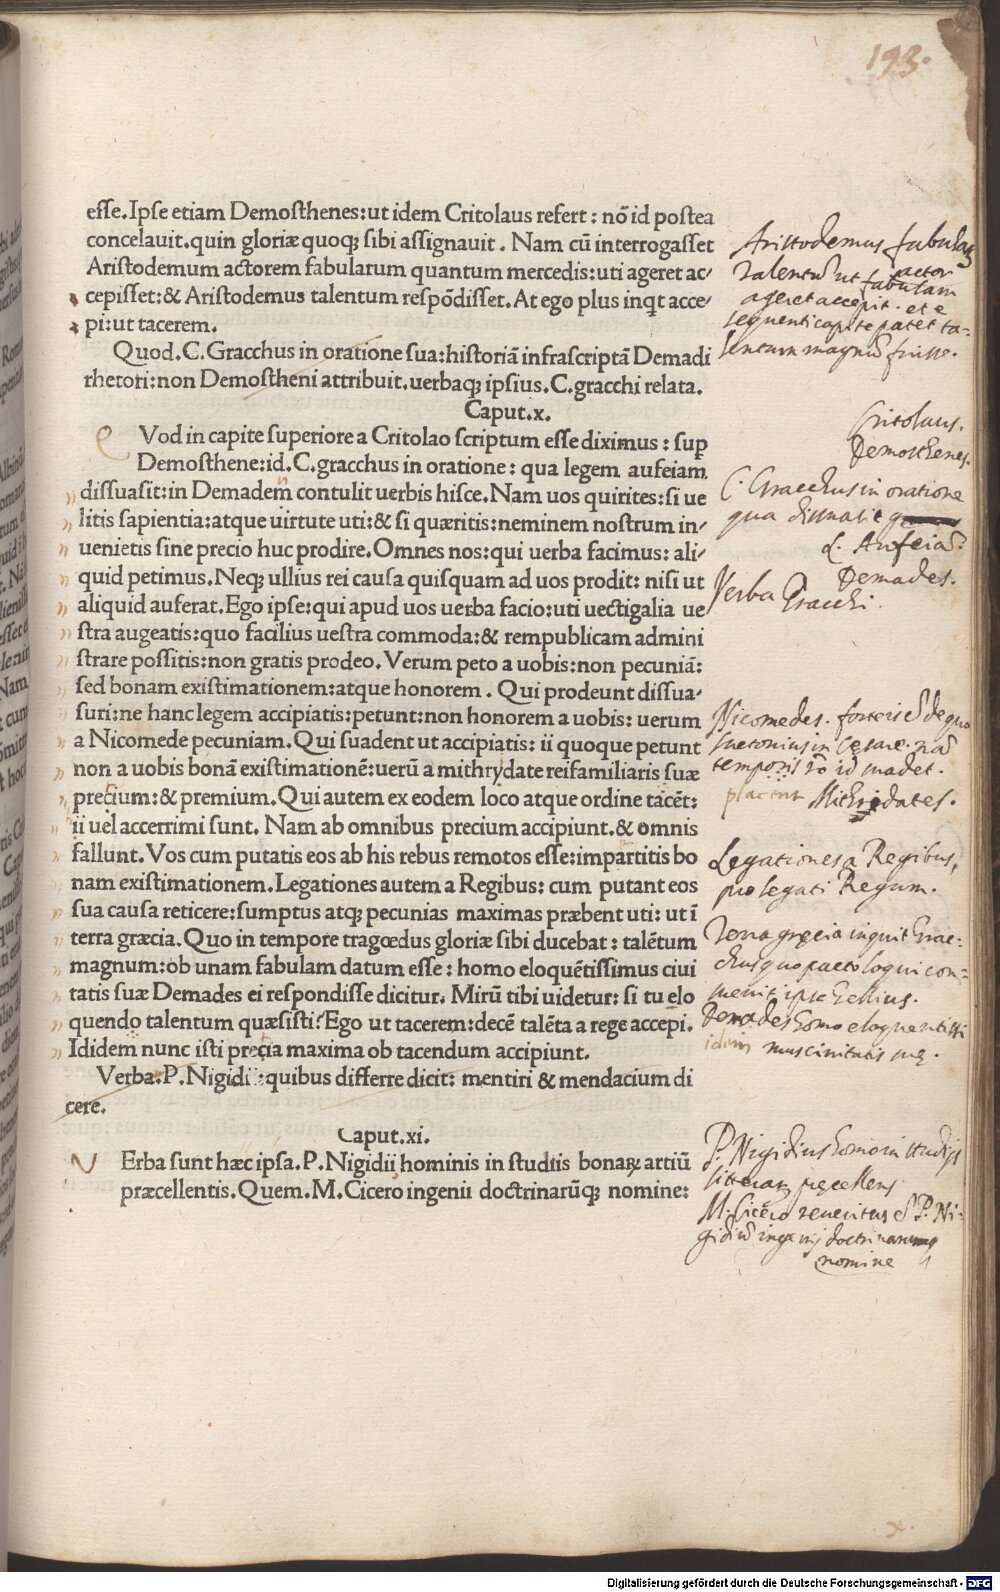 193.
esse. Ipse etiam Demosthenes: ut idem Critolaus refert: nō id postea
concelauit. quin gloriæ quoqꝫ sibi assignauit. Nam cū interrogasset
Aristodemum actorem fabularum quantum mercedis: uti ageret ac/
cepisset: & Aristodemus talentum respōdisset. At ego plus inqt acce/
pi: ut tacerem.
Quod. C. Gracchus in oratione sua: historiā infrascriptā Demadi
rhetori: non Demostheni attribuit. uerbaqꝫ ipsius. C. gracchi relata.
Caput. x.
Vod in capite superiore a Critolao scriptum esse diximus: sup
Demosthene: id. C. gracchus in oratione: qua legem aufeiam
dissuasit: in Demadem contulit uerbis hisce. Nam uos quirites: si ue
litis sapientia: atque uirtute uti: & si quæritis: neminem nostrum in/
uenietis sine precio huc prodire. Omnes nos: qui uerba facimus: ali/
quid petimus. Neqꝫ ullius rei causa quisquam ad uos prodit: nisi ut
aliquid auferat. Ego ipse: qui apud uos uerba facio: uti uectigalia ue
stra augeatis: quo facilius uestra commoda: & rempublicam admini
strare possitis: non gratis prodeo. Verum peto a uobis: non pecuniā:
sed bonam existimationem: atque honorem. Qui prodeunt dissua/
suri: ne hanc legem accipiatis: petunt: non honorem a uobis: uerum
a Nicomede pecuniam. Qui suadent ut accipiatis: ii quoque petunt
non a uobis bonā existimationē: uerū a mithrydate reifamiliaris suæ
precium: & premium. Qui autem ex eodem loco atque ordine tacēt:
ii uel accerrimi sunt. Nam ab omnibus precium accipiunt. & omnis
fallunt. Vos cum putatis eos ab his rebus remotos esse: impartitis bo
nam existimationem. Legationes autem a Regibus: cum putant eos
sua causa reticere: sumptus atqꝫ pecunias maximas præbent uti: ut ī
terra græcia. Quo in tempore tragœdus gloriæ sibi ducebat: talētum
magnum: ob unam fabulam datum esse: homo eloquētissimus ciui
tatis suæ Demades ei respondisse dicitur. Mirū tibi uidetur: si tu elo
quendo talentum quæsisti? Ego ut tacerem: decē talēta a rege accepi.
Ididem nunc isti precia maxima ob tacendum accipiunt.
Verba. P. Nigidi: quibus differre dicit: mentiri & mendacium di
cere.
Caput. xi.
Erba sunt hæc ipsa. P. Nigidii hominis in studiis bonaꝝ artiū
præcellentis. Quem. M. Cicero ingenii doctrinarūqꝫ nomine:
Aristodemus fabulaꝝ
actor
talentū ut fabulam
ageret accepit. et e
sequenti capite patet ta-
lentum magnū fuisse.
Critolaus.
Demosthenes.
C. Gracchus in oratione
qua dissuasit
L. Aufeiā.
Demades.
Verba Gracchi.
Nicomedes. de quo
Suetonius in Cesare.
Mithridates.
Legationes a Regibus,
pro legati Regum.
Terra gręcia inquit Grac-
chus quo pacto loqui con-
uenit ipse Gellius.
Demades homo eloquentissi
idem mus ciuitatis suę.
P. Nigidius homo in studijs
litteraꝝ pręcellens
M. Cicero reueritus ē P. Ni-
gidiū ingenij doctrinarumqꝫ
nomine
Digitalisierung gefördert durch die Deutsche Forschungsgemeinschaft - DFG